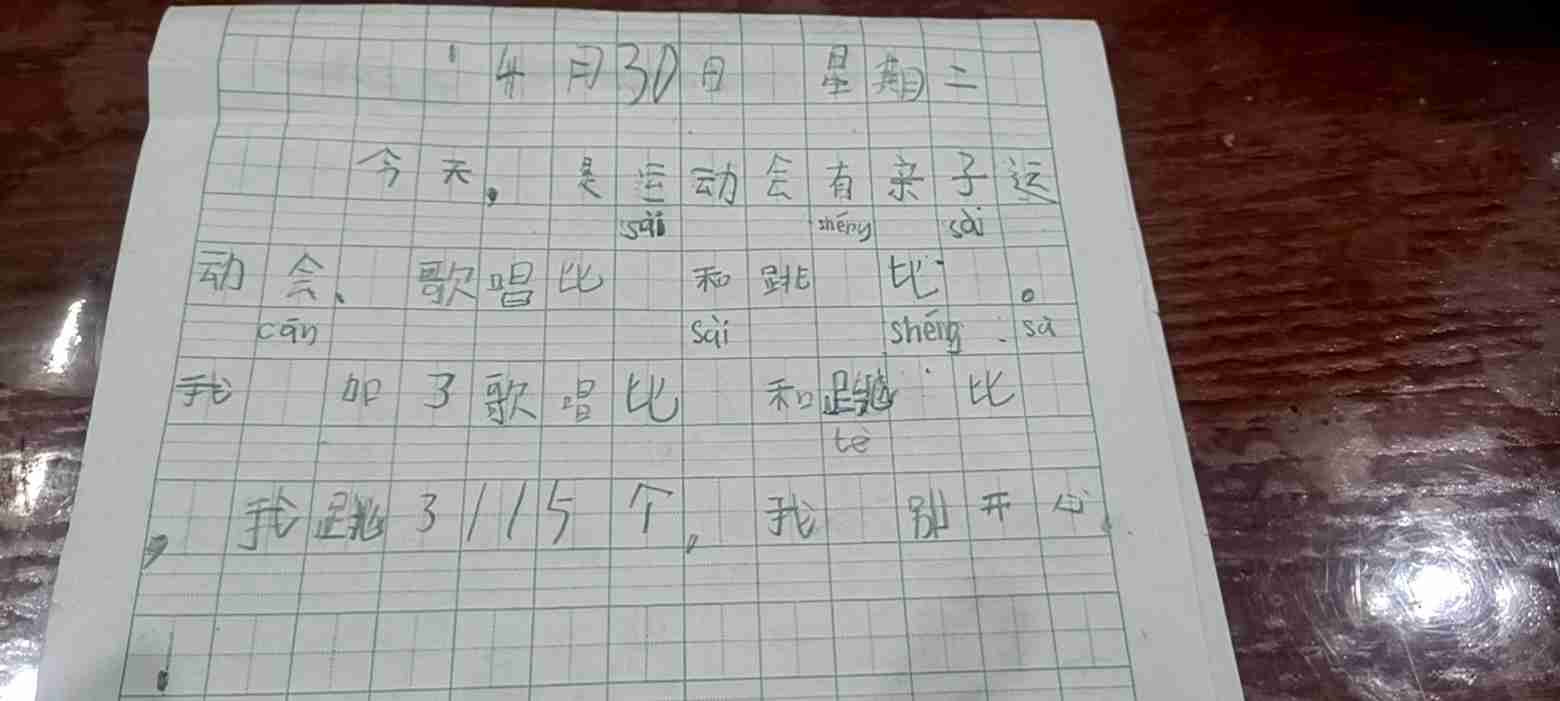 4月30日 星期二
今天，是运动会有亲子运
sài shéng sài
动会、歌唱比 和跳 比 。
cān sài shéng sà
我 加了歌唱比 和跳 比
tè
，我跳了115个，我 别开心
！